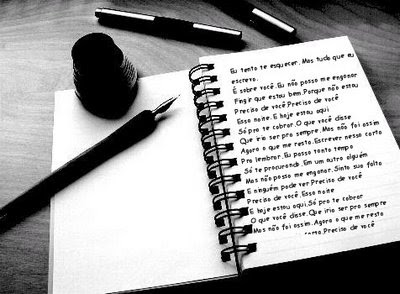 Eu tento te esquecer. Mas tudo que eu
escrevo.
É sobre você.Eu não posso me enganar
Fingir que estou bem.Porque não estou
Preciso de você.Preciso de você
Essa noite. E hoje estou aqui
Só pra te cobrar.O que você disse
Que iria ser pra sempre. Mas não foi assim
Agora o que me resta.Escrever nessa carta
Pra lembrar.Eu passo tanto tempo
Só te procurando.Em um outro alguém
Mas não posso me enganar.Sinto sua falta
E ninguém pode ver.Preciso de
você.Preciso de você.Essa noite
E hoje estou aqui.Só pra te cobrar
O que você disse.Que iria ser pra sempre
Mas não foi assim.Agora o que me resta
carta.Preciso de você